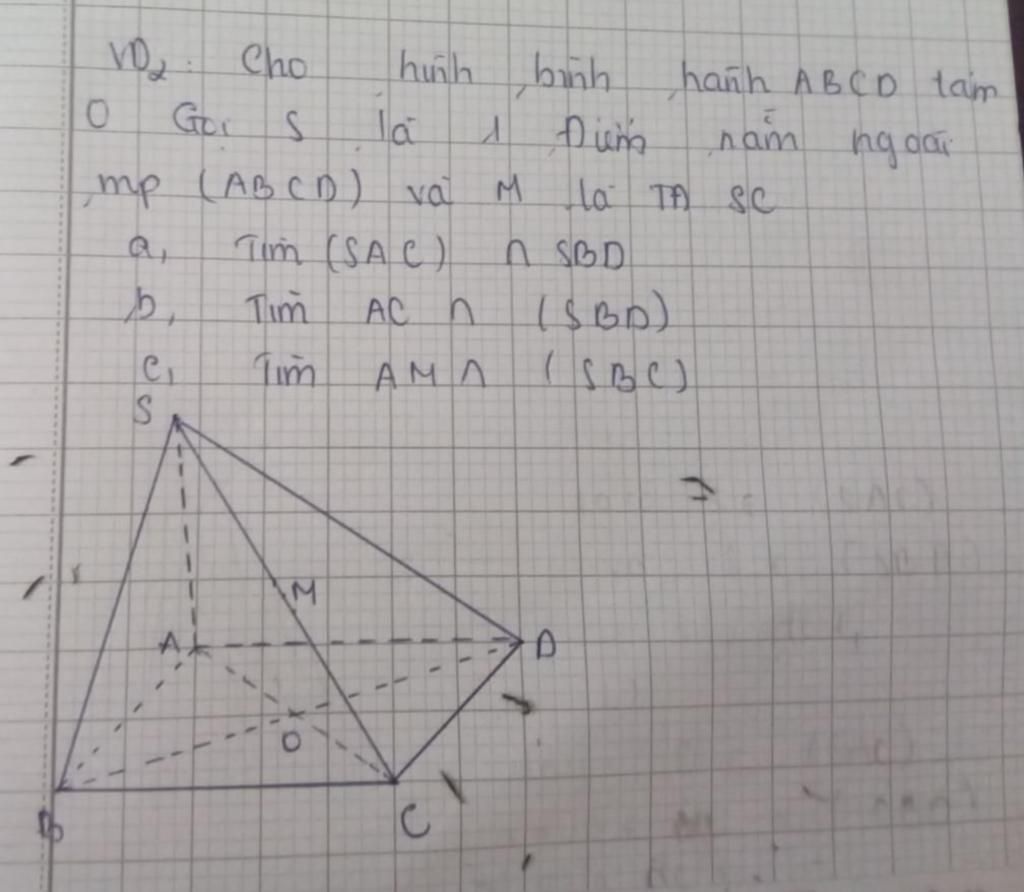 VD2. Cho hình bình hành ABCD tâm
O Gọi S là 1 Điểm nằm ngoài
mp (ABCD) và M là TĐ SC
a, Tìm (SAC) ∩ SBD
b, Tìm AC ∩ (SBD)
c, Tìm AM ∩ (SBC)
S
M
A
D
O
B
C